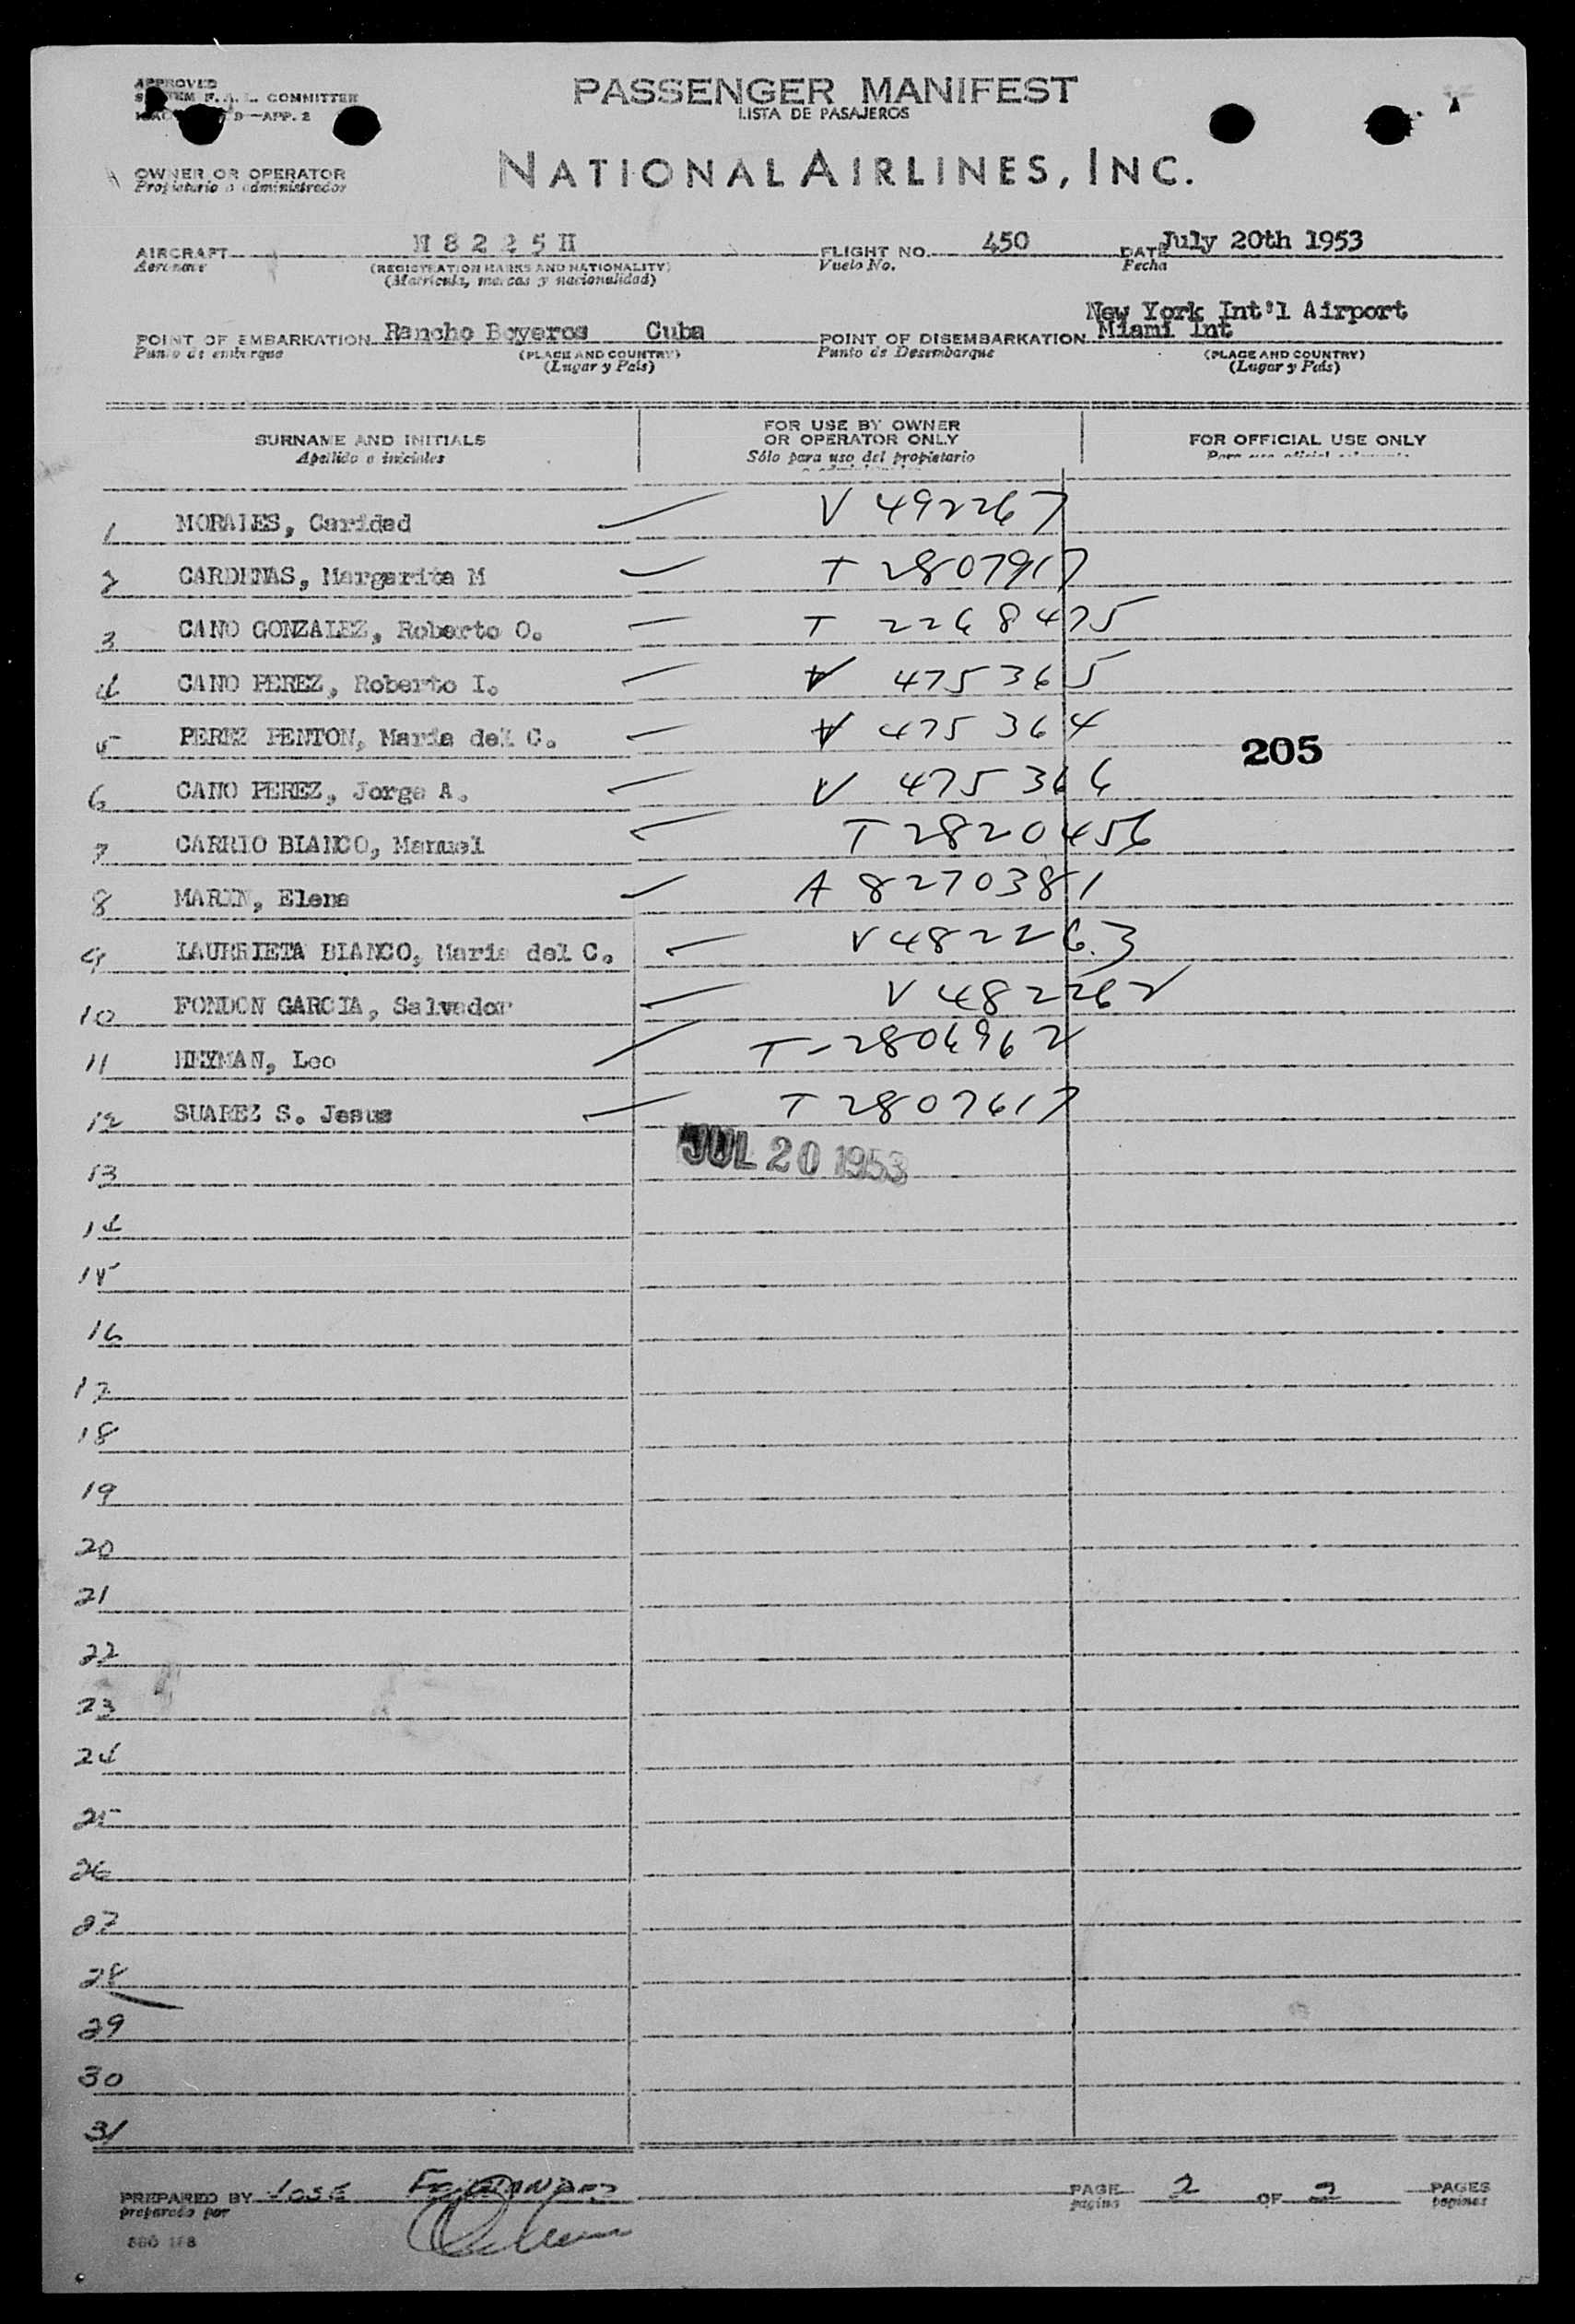 APPROVED
F. A. L. COMMITTEE
APP. 2
PASSENGER MANIFEST
LISTA DE PASAJEROS
OWNER OR OPERATOR
Propietario o administrador
NATIONAL AIRLINES, INC.
AIRCRAFT N 8 2 2 5 H FLIGHT NO. 450 DATE July 20th 1953
Aeronave (REGISTRATION MARKS AND NATIONALITY) Vuelo No. Fecha
(Matricula, marcas y nacionalidad)
New York Int'l Airport
POINT OF EMBARKATION Rancho Boyeros Cuba POINT OF DISEMBARKATION Miami Int
Punto de embarque (PLACE AND COUNTRY) Punto de Desembarque (PLACE AND COUNTRY)
(Lugar y País) (Lugar y País)
SURNAME AND INITIALS FOR USE BY OWNER OR OPERATOR ONLY FOR OFFICIAL USE ONLY
Apellido e iniciales Sólo para uso del propietario
1 MORALES, Caridad V 492267
2 CARDENAS, Margarita M T 2807917
3 CANO GONZALEZ, Roberto O. T 2268475
4 CANO PEREZ, Roberto I. V 475365
5 PEREZ PENTON, Maria del C. V 475364
205
6 CANO PEREZ, Jorge A. V 475366
7 CARRIO BLANCO, Manuel T 2820456
8 MARIN, Elena A 8270381
9 LAURRIETA BIANCO, Maria del C. V482263
10 FONDON GARCIA, Salvador V 482262
11 HEYMAN, Leo T-2806962
12 SUAREZ S. Jesus T 2807617
JUL 20 1953
13
14
15
16
17
18
19
20
21
22
23
24
25
26
27
28
29
30
31
PREPARED BY JOSE FERNANDEZ PAGE 2 OF 2 PAGES
preparado por pagina paginas